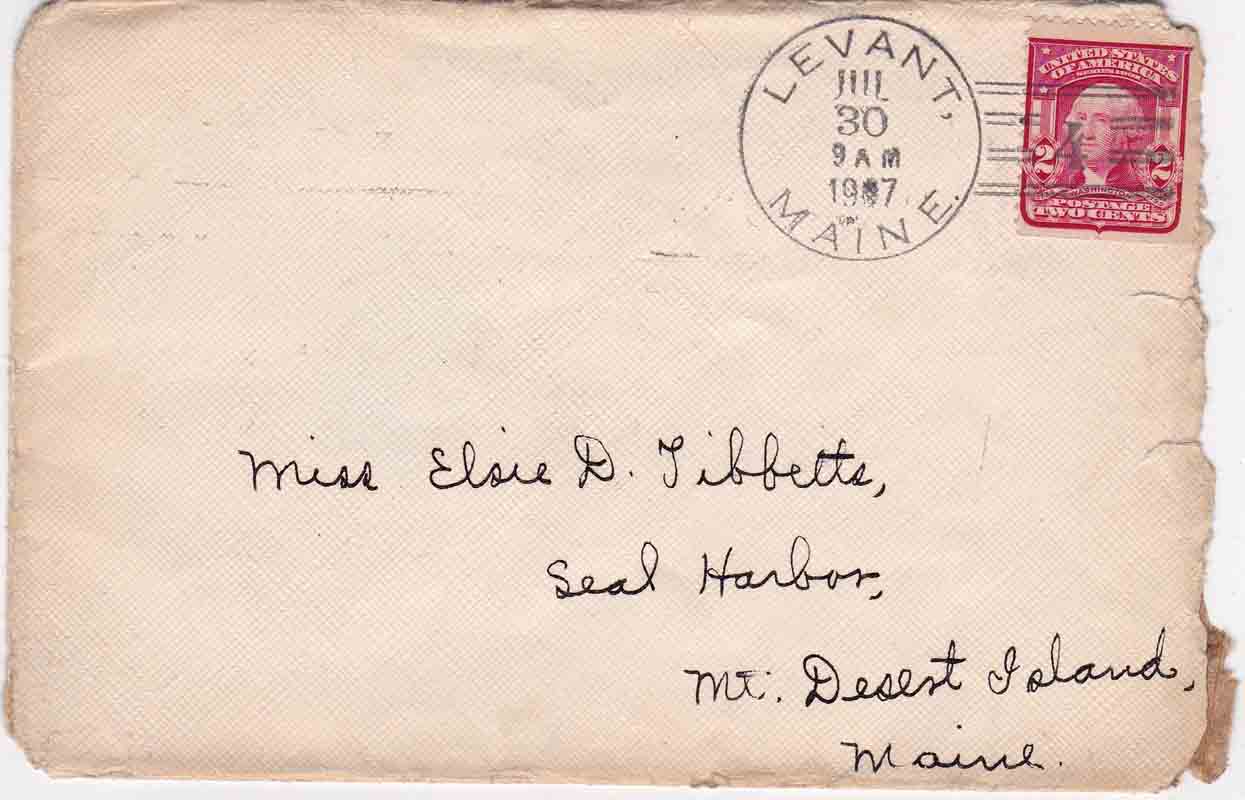 LEVANT,
JUL
30
9 AM
1907
MAINE.
UNITED STATES
OF AMERICA
2 2
WASHINGTON
POSTAGE
TWO CENTS
4
Miss Elsie D. Tibbetts,
Seal Harbor,
Mt. Desert Island,
Maine.